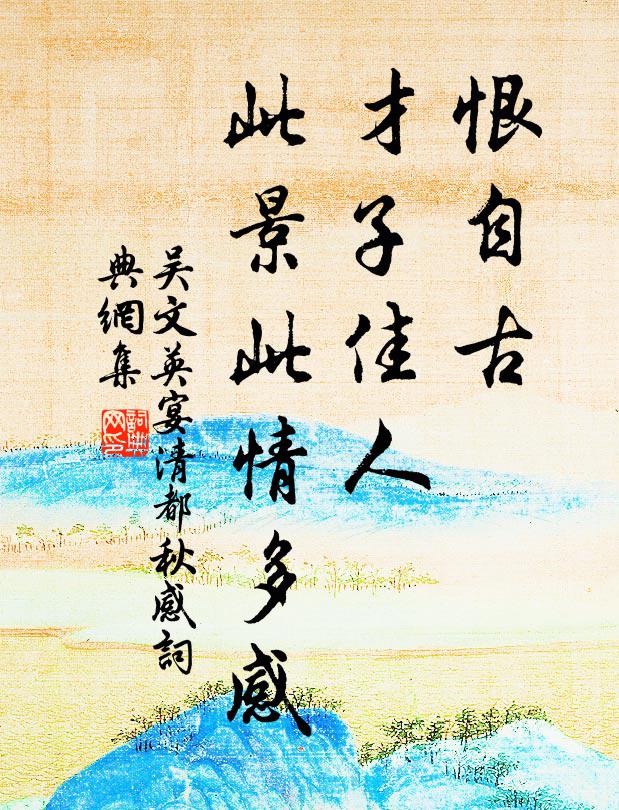 恨自古
才子佳人
此景此情多感
吳文英宴清都秋感詞
典網集
詞典網印